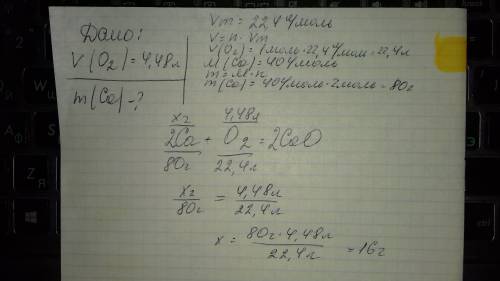 Дано:
V(O₂)=4,48л
m(Ca)-?
Vm = 22,4 л/моль
V=n·Vm
V(O₂)=1моль·22,4л/моль=22,4л
M(Ca)=40г/моль
m=M·n
m(Ca)=40г/моль·2моль=80г
xг 4,48л
2Ca + O₂=2CaO
80г 22,4л
xг/80г = 4,48л/22,4л
x = 80г·4,48л/22,4л =16г